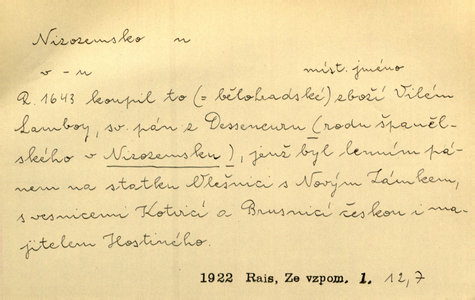 Nizozemsko n
v - u míst. jméno
R. 1643 koupil to (= bělohradské) zboží Vilém
Lamboy, sv. pán z Dessencuru (rodu španěl-
ského v Nizozemsku), jenž byl lenním pá-
nem na statku Vlešnici s Novým Zámkem,
s vesnicemi Kotvicí a Brusnicí českou i ma-
jitelem Hostinného.
1922 Rais, Ze vzpom. 1. 12,7